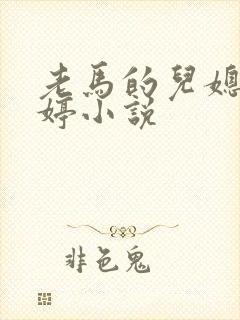 老馬的兒媳
婷小說
非色鬼